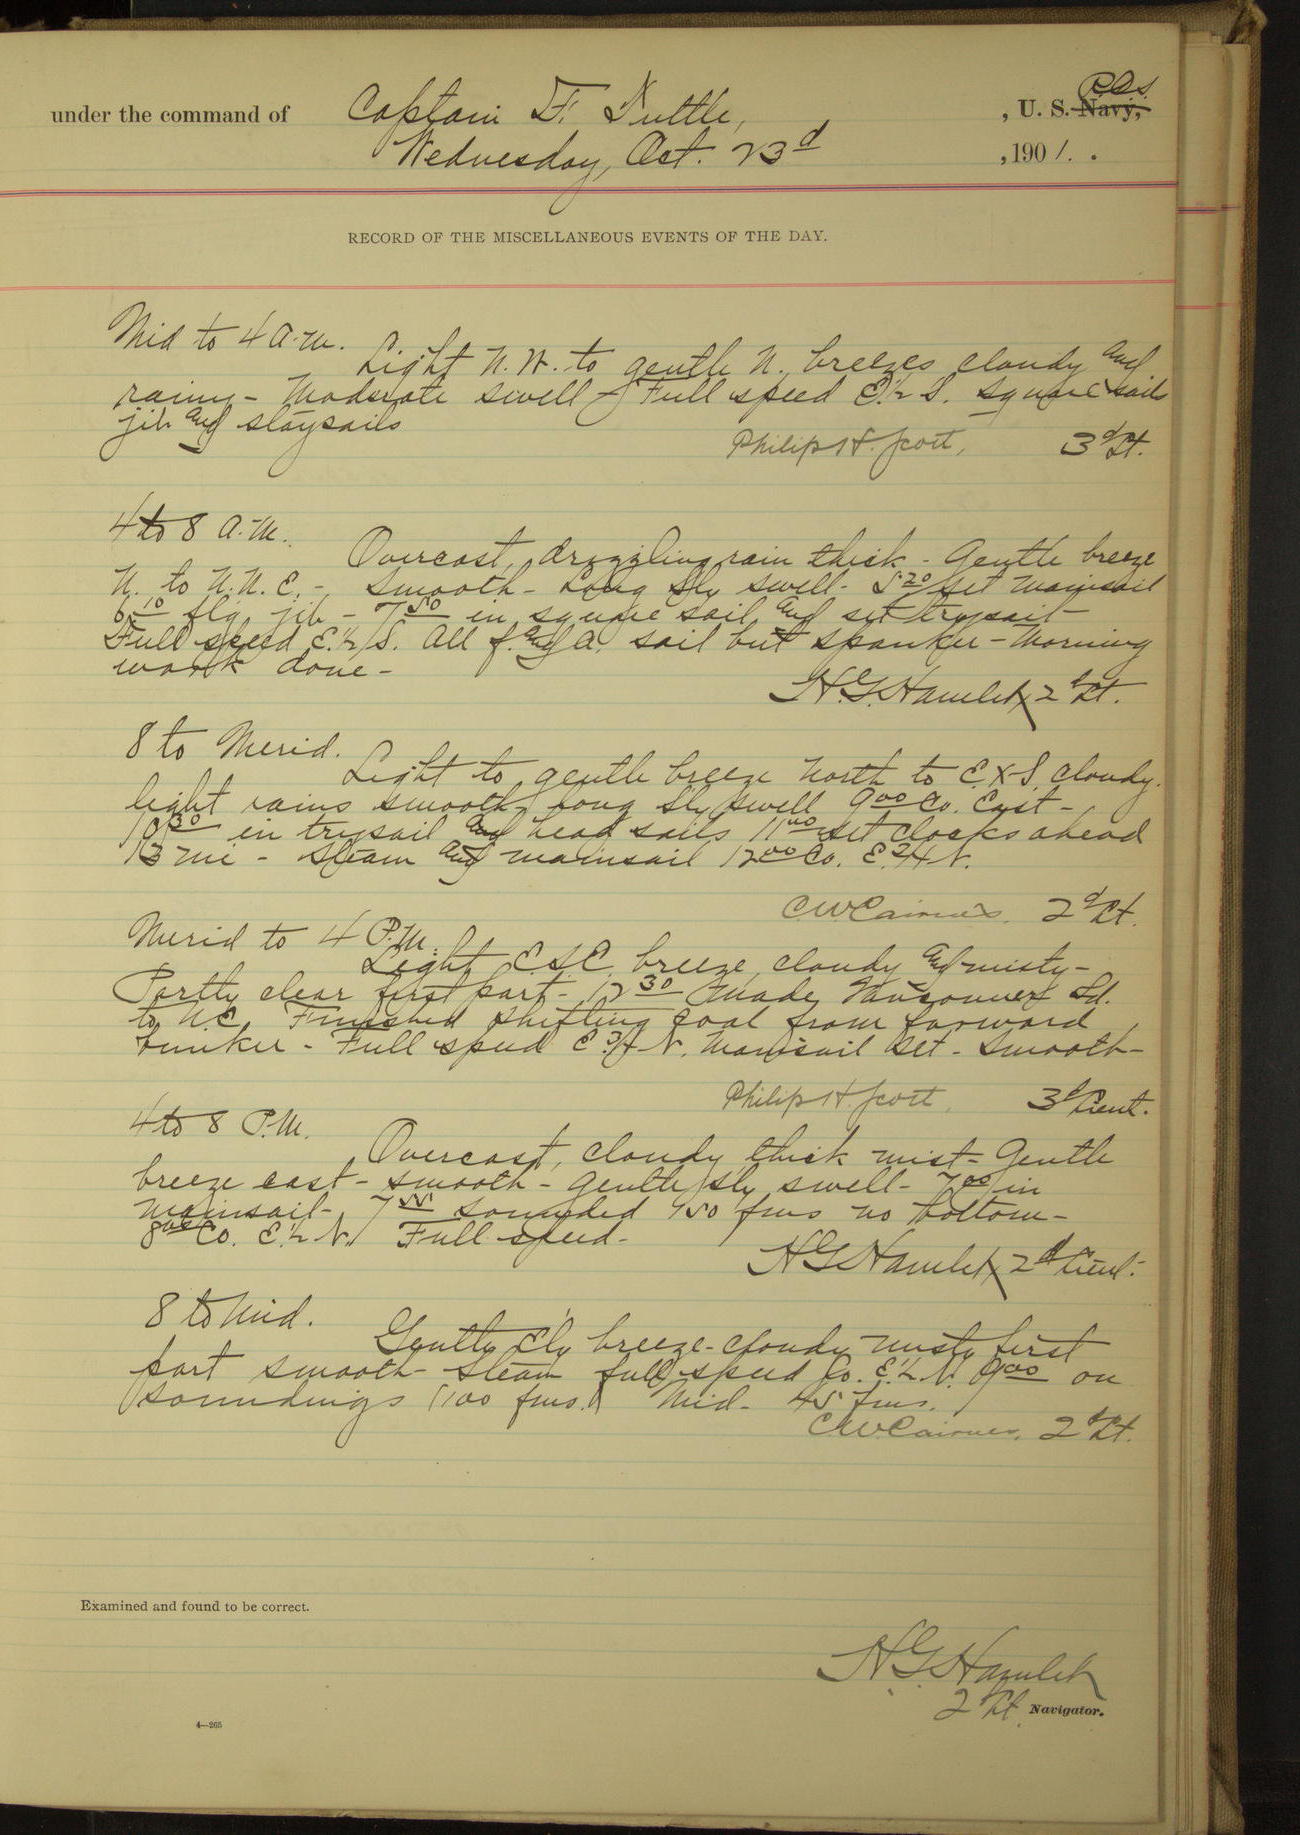 under the command of Captain F. Tuttle, , U. S. Navy, R.C.S.
Wednesday, Oct. 23d , 1901.
RECORD OF THE MISCELLANEOUS EVENTS OF THE DAY.
Mid to 4 a.m.
Light N.W. to gentle N. breezes cloudy and
rainy - Moderate swell - Full speed E.½ S. square sails
jib and staysails
Philip H. Scott, 3d Lt.
4 to 8 a.m.
Overcast, drizzling rain thick - Gentle breeze
N. to N.N.E. - smooth - long Sly swell - 5 20 set mainsail
6 10 flg jib - 7 50 in square sail and set trysail -
Full speed E.½ S. All f. and a. sail but spanker - Morning
work done -
H.G. Hamlet 2d Lt.
8 to Merid.
Light to gentle breeze North to E.x S. cloudy.
light rains smooth - long Sly swell 9 00 Co. East -
10 30 in trysail and head sails 11 00 set clocks ahead
13 mi - Steam and mainsail 12 00 Co. E.¾ N.
C.W. Cairnes. 2d Lt.
Merid to 4 P.M.
Light E.S.E. breeze, cloudy and misty -
Partly clear first part - 12 30 made Vancouver Id.
to N.E. Finished shifting coal from forward
bunker - Full speed E ¾ N. Mainsail set - Smooth -
Philip H. Scott, 3d Lieut.
4 to 8 P.M.
Overcast, cloudy thick mist - Gentle
breeze east - smooth - gentle Sly swell - 7 00 in
mainsail - 7 55 sounded 150 fms no bottom -
8 00 Co. E.½ N. Full speed -
H G Hamlet 2d Lieut.
8 to Mid.
Gentle E'ly breeze - cloudy misty first
part smooth - Steam full speed Co. E.½ N. 9 00 on
soundings (100 fms.) Mid - 45 fms.
C.W. Cairnes, 2d Lt.
Examined and found to be correct.
H.G. Hamlet
2d Lt. Navigator.
4—265